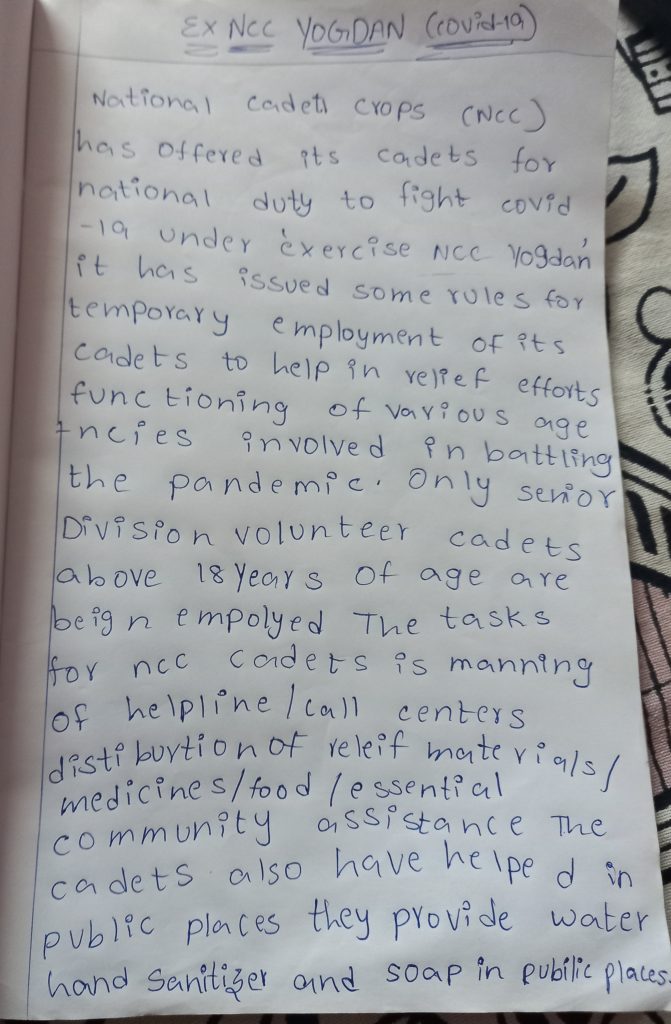 EX NCC YOGDAN (covid-19)
National cadets crops (NCC)
has offered its cadets for
national duty to fight covid
-19 under 'exercise NCC Yogdan'
it has issued some rules for
temporary employment of its
cadets to help in relief efforts
functioning of various age
incies involved in battling
the pandemic. Only senior
Division volunteer cadets
above 18 years of age are
beign empolyed The tasks
for ncc cadets is manning
of helpline/call centers
distiburtion of releif materials/
medicines/food/essential
community assistance The
cadets also have helped in
public places they provide water
hand sanitizer and soap in pubilic places.